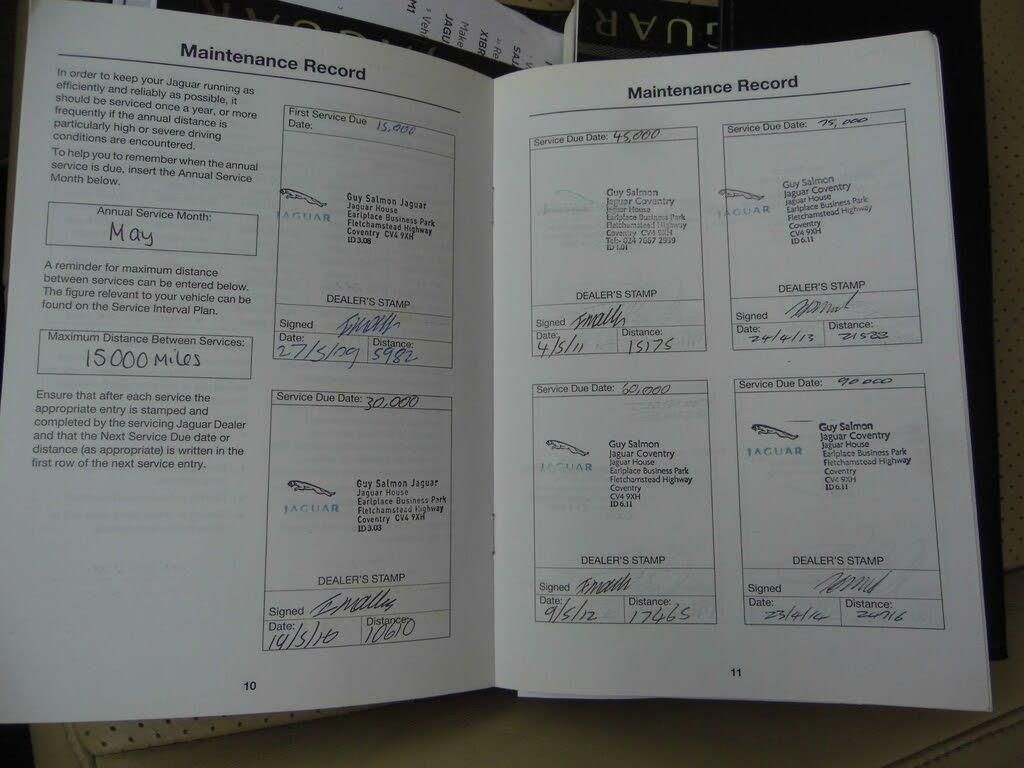 GUAR
Maintenance Record
In order to keep your Jaguar running as
efficiently and reliably as possible, it
should be serviced once a year, or more
frequently if the annual distance is
particularly high or severe driving
conditions are encountered.
To help you to remember when the annual
service is due, insert the Annual Service
Month below.
Annual Service Month:
May
A reminder for maximum distance
between services can be entered below.
The figure relevant to your vehicle can be
found on the Service Interval Plan.
Maximum Distance Between Services:
15000 Miles
Ensure that after each service the
appropriate entry is stamped and
completed by the servicing Jaguar Dealer
and that the Next Service Due date or
distance (as appropriate) is written in the
first row of the next service entry.
First Service Due 15,000
Date:
JAGUAR
Guy Salmon Jaguar
Jaguar House
Earlplace Business Park
Fletchamstead Highway
Coventry CV4 9XH
ID 3.08
DEALER'S STAMP
Signed
Date: Distance:
27/5/09 5982
Service Due Date: 30,000
JAGUAR
Guy Salmon Jaguar
Jaguar House
Earlplace Business Park
Fletchamstead Highway
Coventry CV4 9XH
ID 3.03
DEALER'S STAMP
Signed
Date: Distance:
19/5/10 10610
10
Maintenance Record
Service Due Date: 45,000
Guy Salmon
Jaguar Coventry
Jaguar House
Earlplace Business Park
Fletchamstead Highway
Coventry CV4 9XH
Tel:- 024 7667 2999
DEALER'S STAMP
Signed
Date: Distance:
4/5/11 15175
Service Due Date: 60,000
JAGUAR
Guy Salmon
Jaguar Coventry
Jaguar House
Earlplace Business Park
Fletchamstead Highway
Coventry
CV4 9XH
ID 6.11
DEALER'S STAMP
Signed
Date: Distance:
9/5/12 17465
Service Due Date: 75,000
JAGUAR
Guy Salmon
Jaguar Coventry
Jaguar House
Earlplace Business Park
Fletchamstead Highway
Coventry
CV4 9XH
ID 6.11
DEALER'S STAMP
Signed
Date: Distance:
24/4/13
Service Due Date: 90000
JAGUAR
Guy Salmon
Jaguar Coventry
Jaguar House
Earlplace Business Park
Fletchamstead Highway
Coventry
CV4 9XH
ID 6.11
DEALER'S STAMP
Signed
Date: Distance:
23/4/14 24716
11